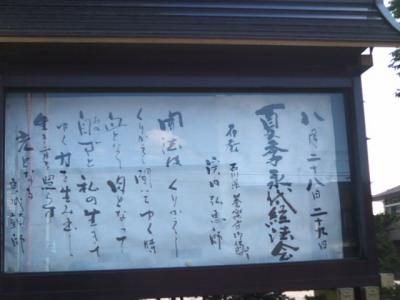 八月二十八日二十九日
夏季永代経法会
石川県
浜田弘志師
聞法は くりかえし
くりかえし聞いてゆく時
血となり 肉となって
自ずと 私の生きて
ゆく力を生み出し
生き方を照らす
光となる